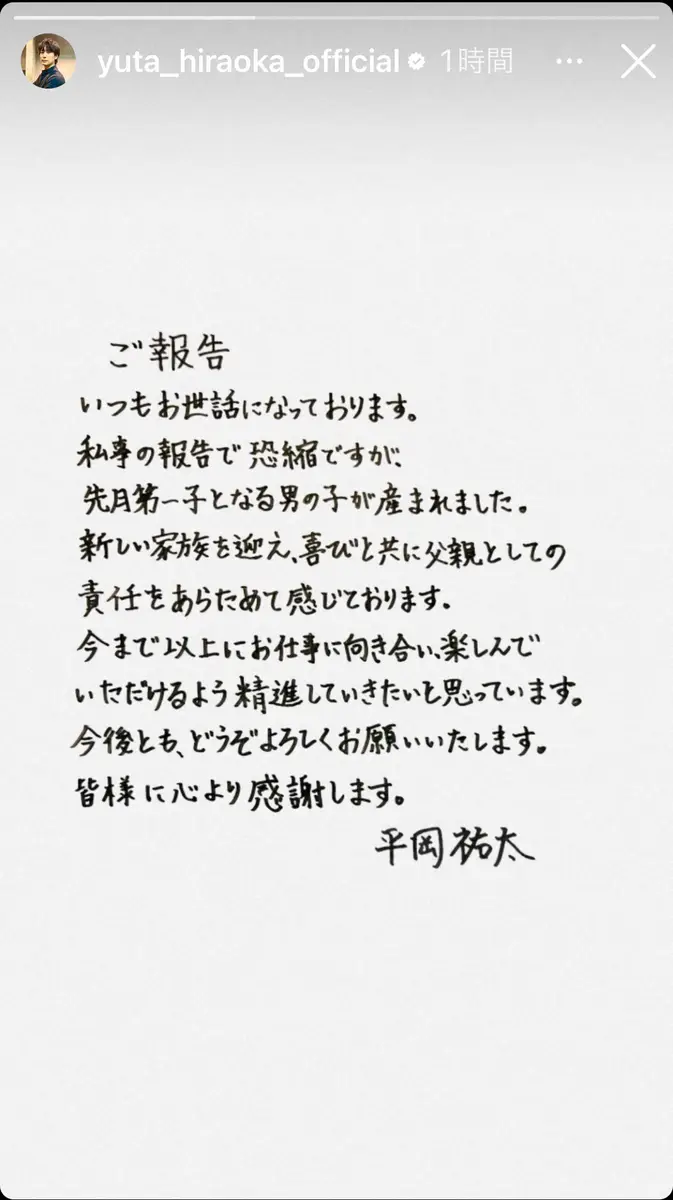 yuta_hiraoka_official 1時間
ご報告
いつもお世話になっております。
私事の報告で恐縮ですが、
先月第一子となる男の子が産まれました。
新しい家族を迎え、喜びと共に父親としての
責任をあらためて感じております。
今まで以上にお仕事に向き合い、楽しんで
いただけるよう精進していきたいと思っています。
今後とも、どうぞよろしくお願いいたします。
皆様に心より感謝します。
平岡祐太